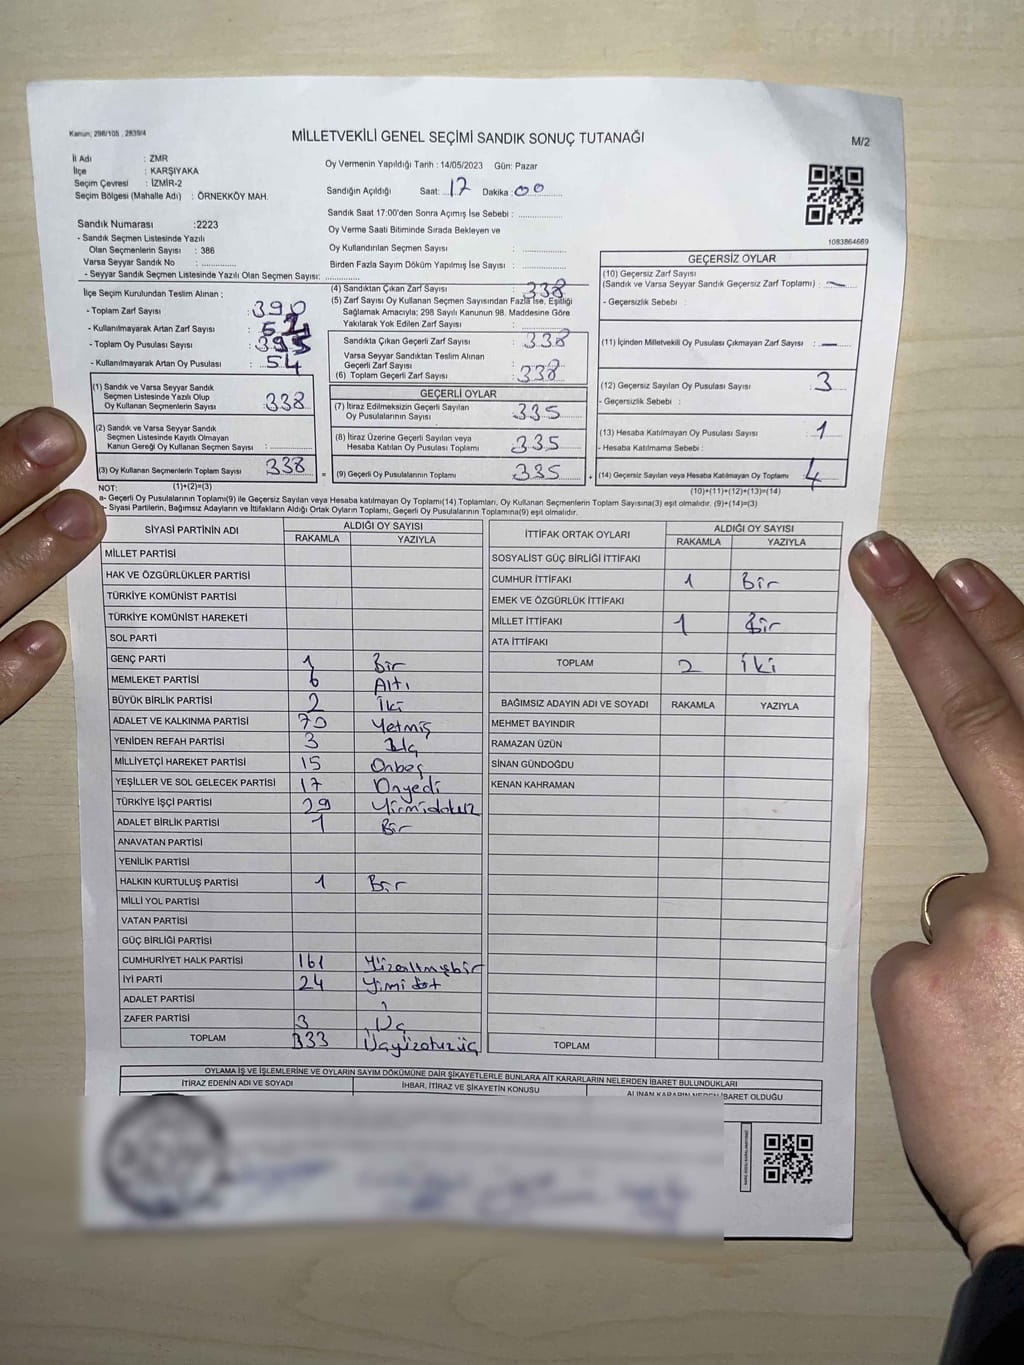 Kanun; 298/105 , 2839/4
MİLLETVEKİLİ GENEL SEÇİMİ SANDIK SONUÇ TUTANAĞI
M/2
İl Adı : ZMR
İlçe : KARŞIYAKA
Seçim Çevresi : İZMİR-2
Seçim Bölgesi (Mahalle Adı) : ÖRNEKKÖY MAH.
Oy Vermenin Yapıldığı Tarih : 14/05/2023 Gün: Pazar
Sandığın Açıldığı Saat: 17 Dakika : 00
Sandık Saat 17:00'den Sonra Açımış İse Sebebi :
Oy Verme Saati Bitiminde Sırada Bekleyen ve
Oy Kullandırılan Seçmen Sayısı :
Birden Fazla Sayım Döküm Yapılmış İse Sayısı :
Sandık Numarası :2223
- Sandık Seçmen Listesinde Yazılı
Olan Seçmenlerin Sayısı : 386
Varsa Seyyar Sandık No :
- Seyyar Sandık Seçmen Listesinde Yazılı Olan Seçmen Sayısı:
1083864669
İlçe Seçim Kurulundan Teslim Alınan :
- Toplam Zarf Sayısı : 390
- Kullanılmayarak Artan Zarf Sayısı : 52
- Toplam Oy Pusulası Sayısı : 395
- Kullanılmayarak Artan Oy Pusulası : 54
(1) Sandık ve Varsa Seyyar Sandık
Seçmen Listesinde Yazılı Olup
Oy Kullanan Seçmenlerin Sayısı : 338
(2) Sandık ve Varsa Seyyar Sandık
Seçmen Listesinde Kayıtlı Olmayan
Kanun Gereği Oy Kullanan Seçmen Sayısı :
(3) Oy Kullanan Seçmenlerin Toplam Sayısı 338
(4) Sandıktan Çıkan Zarf Sayısı : 338
(5) Zarf Sayısı Oy Kullanan Seçmen Sayısından Fazla İse, Eşitliği
Sağlamak Amacıyla; 298 Sayılı Kanunun 98. Maddesine Göre
Yakılarak Yok Edilen Zarf Sayısı :
Sandıkta Çıkan Geçerli Zarf Sayısı : 338
Varsa Seyyar Sandıktan Teslim Alınan
Geçerli Zarf Sayısı :
(6) Toplam Geçerli Zarf Sayısı 338
GEÇERLİ OYLAR
(7) İtiraz Edilmeksizin Geçerli Sayılan
Oy Pusulalarının Sayısı 335
(8) İtiraz Üzerine Geçerli Sayılan veya
Hesaba Katılan Oy Pusulası Toplamı 335
= (9) Geçerli Oy Pusulalarının Toplamı 335 +
GEÇERSİZ OYLAR
(10) Geçersiz Zarf Sayısı
(Sandık ve Varsa Seyyar Sandık Geçersiz Zarf Toplamı) : —
- Geçersizlik Sebebi :
(11) İçinden Milletvekili Oy Pusulası Çıkmayan Zarf Sayısı : —
(12) Geçersiz Sayılan Oy Pusulası Sayısı 3
- Geçersizlik Sebebi :
(13) Hesaba Katılmayan Oy Pusulası Sayısı : 1
- Hesaba Katılmama Sebebi :
(14) Geçersiz Sayılan veya Hesaba Katılmayan Oy Toplamı 4
NOT: (1)+(2)=(3)
(10)+(11)+(12)+(13)=(14)
a- Geçerli Oy Pusulalarının Toplamı(9) ile Geçersiz Sayılan veya Hesaba katılmayan Oy Toplamı(14) Toplamları, Oy Kullanan Seçmenlerin Toplam Sayısına(3) eşit olmalıdır. (9)+(14)=(3)
- Siyasi Partilerin, Bağımsız Adayların ve İttifakların Aldığı Ortak Oyların Toplamı, Geçerli Oy Pusulalarının Toplamına(9) eşit olmalıdır.
SİYASİ PARTİNİN ADI ALDIĞI OY SAYISI
RAKAMLA YAZIYLA
MİLLET PARTİSİ
HAK VE ÖZGÜRLÜKLER PARTİSİ
TÜRKİYE KOMÜNİST PARTİSİ
TÜRKİYE KOMÜNİST HAREKETİ
SOL PARTİ
GENÇ PARTİ 1 Bir
MEMLEKET PARTİSİ 6 Altı
BÜYÜK BİRLİK PARTİSİ 2 İki
ADALET VE KALKINMA PARTİSİ 70 Yetmiş
YENİDEN REFAH PARTİSİ 3 Üç
MİLLİYETÇİ HAREKET PARTİSİ 15 Onbeş
YEŞİLLER VE SOL GELECEK PARTİSİ 17 Onyedi
TÜRKİYE İŞÇİ PARTİSİ 29 Yirmidokuz
ADALET BİRLİK PARTİSİ 1 Bir
ANAVATAN PARTİSİ
YENİLİK PARTİSİ
HALKIN KURTULUŞ PARTİSİ 1 Bir
MİLLİ YOL PARTİSİ
VATAN PARTİSİ
GÜÇ BİRLİĞİ PARTİSİ
CUMHURİYET HALK PARTİSİ 161 Yüzaltmışbir
İYİ PARTİ 24
ADALET PARTİSİ
ZAFER PARTİSİ 3 Üç
TOPLAM 333 Üçyüzotuzüç
İTTİFAK ORTAK OYLARI ALDIĞI OY SAYISI
RAKAMLA YAZIYLA
SOSYALİST GÜÇ BİRLİĞİ İTTİFAKI
CUMHUR İTTİFAKI 1 Bir
EMEK VE ÖZGÜRLÜK İTTİFAKI
MİLLET İTTİFAKI 1 Bir
ATA İTTİFAKI
TOPLAM 2 İki
BAĞIMSIZ ADAYIN ADI VE SOYADI RAKAMLA YAZIYLA
MEHMET BAYINDIR
RAMAZAN ÜZÜN
SİNAN GÜNDOĞDU
KENAN KAHRAMAN
TOPLAM
OYLAMA İŞ VE İŞLEMLERİNE VE OYLARIN SAYIM DÖKÜMÜNE DAİR ŞİKAYETLERLE BUNLARA AİT KARARLARIN NELERDEN İBARET BULUNDUKLARI
İTİRAZ EDENİN ADI VE SOYADI İHBAR, İTİRAZ VE ŞİKAYETİN KONUSU ALINAN KARARIN NEDEN İBARET OLDUĞU